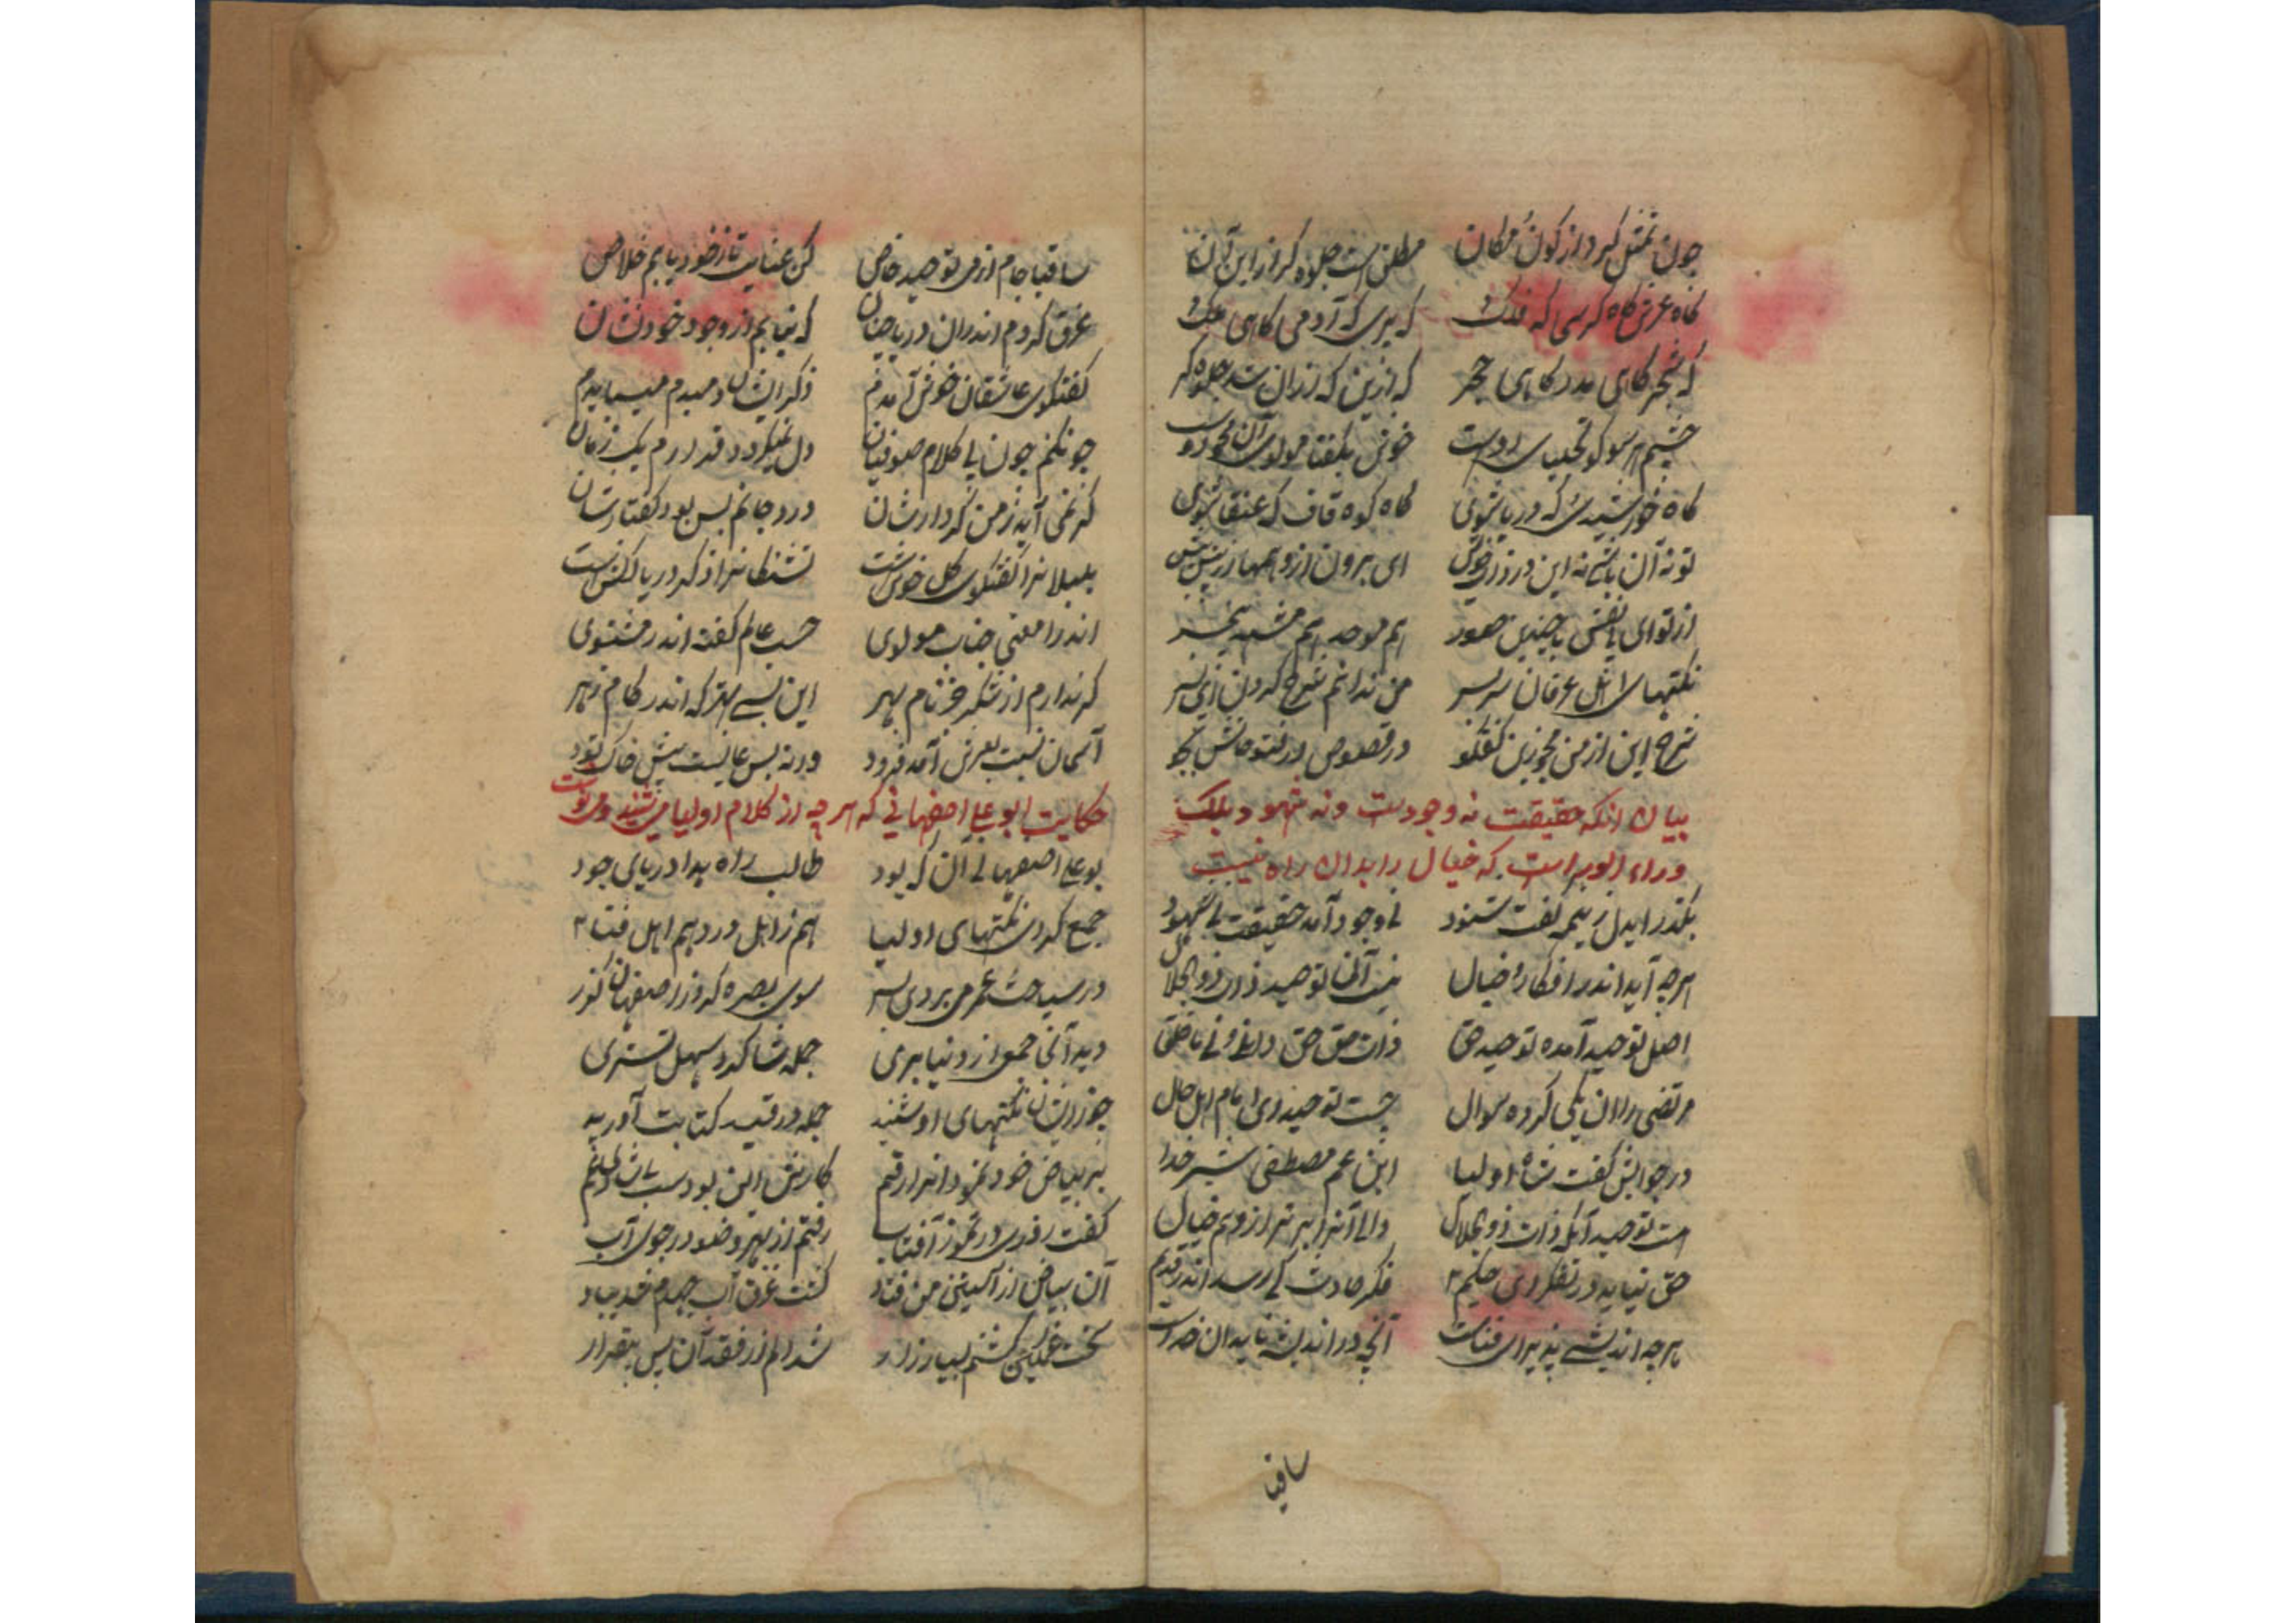 چون تمثل کرد از کون و مکان مطلق است جلوه کر از این و آن
کاه عرش کاه کرسی که فلک که پری که آدمی کاهی ملک
که شجر کاهی مدر کاهی حجر که ازین که زان شد جلوه کر
چشم هر سو کو تجلیات اوست خوش بکفتا مولوی آن محو دوست
کاه خورشیدی که دریا شوی کاه کوه قاف که عنقا شوی
تو نه آن باشی نه این در ذات خویش ای برون از وهمها در پیش پیش
از تو ای بی نقش با چندین صور هم موحد هم مشبه خیره سر
نکتهای اهل عرفان سر بسر من ندانم شرح کردن ای پسر
شرح این از من مجو زین کفتکو در فصوص و در فتوحاتش بجو
بیان انکه حقیقت نه وجودست و نه شهود بلکه
وراء الوراست که خیال را بدان راه نیست
بکذر ایدل زین همه کفت شنود نی وجود آمد حقیقت نی شهود
هرچه آید اندر افکار و خیال نیست آن توحید ذات ذوالجلال
اصل توحید آمده توحید حق ذات حق حق داند و نی ما خلق
مرتضی را آن یکی کرده سوال چیست توحید ای امام اهل حال
در جوابش کفت شاه اولیا ابن عم مصطفی شیر خدا
هست توحید آنکه ذات ذوالجلال دانی آنرا برتر از وهم خیال
حق نیاید در تفکر ای حکیم فکر حادث کی رسد اندر قدیم
هرچه اندیشی پذیرای فناست آنچه در اندیشه ناید آن خداست
ساقیا
ساقیا جام از می توحید خاص کن عنایت تا ز خود یابم خلاص
غرق کردم اندران دریا چنان که نیابم از وجود خود نشان
کفتکوی عاشقان خوش آمدم ذکر ایشان دمبدم میبایدم
چونکنم چون بی کلام صوفیان دل نمیکیرد قرارم یک زمان
کر نمی آید ز من کردارشان درد جانم بس بود کفتارشان
بلبلانرا کفتکوی کل خوش است تشنکانرا ذکر دریا دلکش است
اندرا معنی جناب مولوی حسب حالم کفته اندر مثنوی
کر ندارم از شکر جز نام بهر این بسی بهتر که اندر کام زهر
آسمان نسبت بعرش آمد فرود ورنه بس عالیست پیش خاک تود
حکایت ابو علی اصفهانی که هر چه از کلام اولیا می شنید می نوشت
بو علی اصفهانی آن که بود طالب راه خدا دریای جود
جمع کردی نکتهای اولیا هم ز اهل درد هم اهل فنا
در سیاحت عمر می بردی بسر سوی بصره کرد از اصفهان کذر
دید آنجا جمع از دنیا بری جمله شاکرد سهل تستری
چو ز ایشان نکتهای او شنید جمله در قید کتابت آورید
بر بیاض خود نمود آنرا رقم کارش این بود
کفت روزی در تموز آفتاب رفتم از بهر وضو در جوی آب
آن بیاض از آستین من فتاد کشت غرق آب
سخت غمکین کشتم بسیار زار شد دلم از فقد آن بس بیقرار